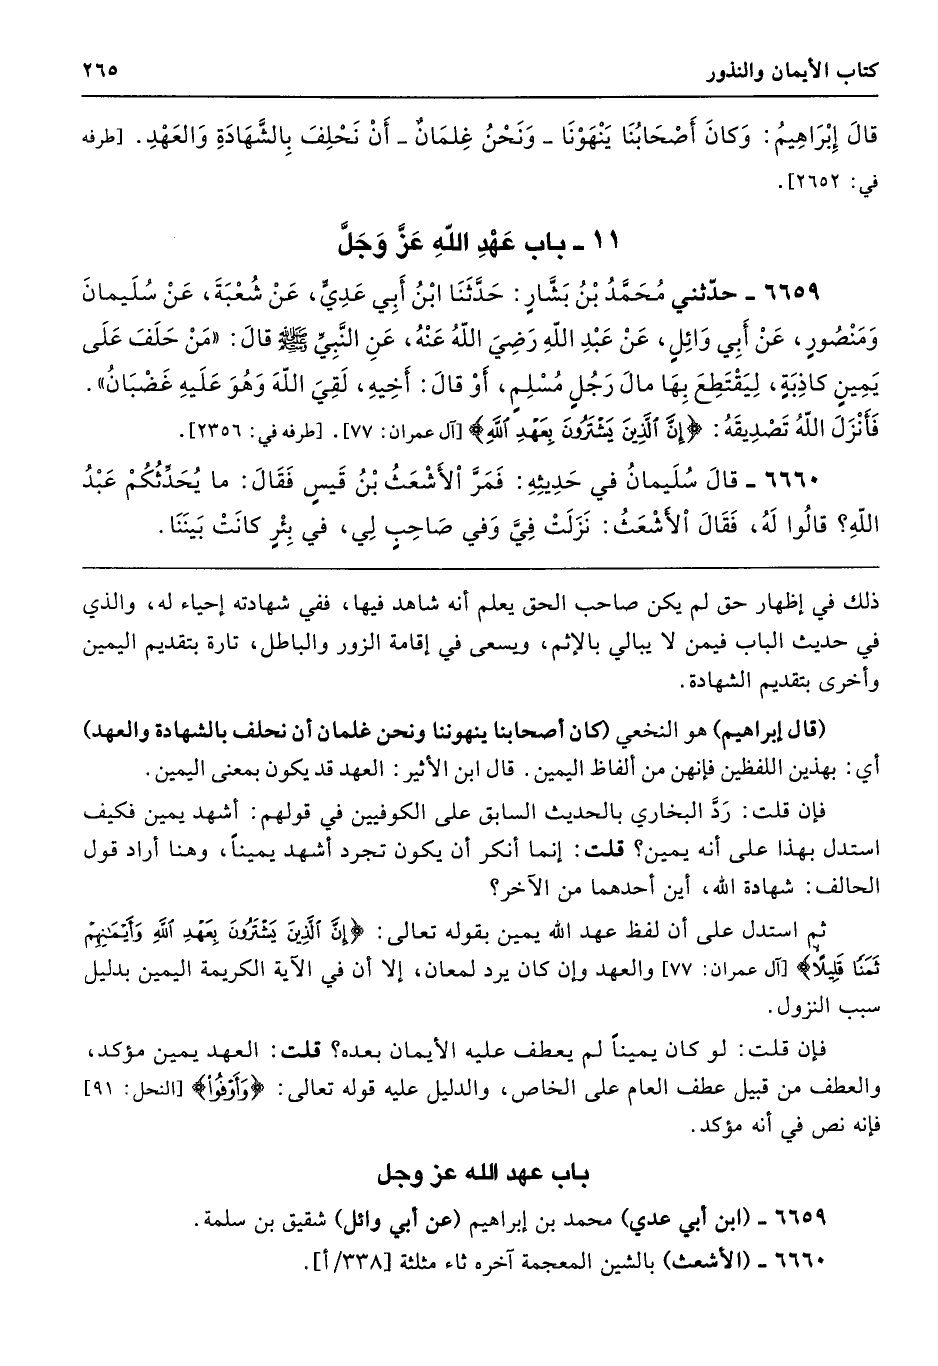 كتاب الأيمان والنذور ٢٦٥
قالَ إِبْرَاهِيمُ: وَكانَ أَصْحَابُنَا يَنْهَوْنَا ـ وَنَحْنُ غِلمَانٌ ـ أَنْ نَحْلِفَ بِالشَّهَادَةِ وَالعَهْدِ. [طرفه
في: ٢٦٥٢].
١١ ـ باب عَهْدِ اللّهِ عَزَّ وَجَلَّ
٦٦٥٩ ـ حدّثني مُحَمَّدُ بْنُ بَشَّارٍ: حَدَّثَنَا ابْنُ أَبِي عَدِيٍّ، عَنْ شُعْبَةَ، عَنْ سُلَيمانَ
وَمَنْصُورٍ، عَنْ أَبِي وَائِلٍ، عَنْ عَبْدِ اللّهِ رَضِيَ اللّهُ عَنْهُ، عَنِ النَّبِيِّ ﷺ قالَ: «مَنْ حَلَفَ عَلَى
يَمِينٍ كاذِبَةٍ، لِيَقْتَطِعَ بِهَا مالَ رَجُلٍ مُسْلِمٍ، أَوْ قالَ: أَخِيهِ، لَقِيَ اللّهَ وَهُوَ عَلَيهِ غَضْبَانُ».
فَأَنْزَلَ اللّهُ تَصْدِيقَهُ: ﴿إِنَّ ٱلَّذِينَ يَشْتَرُونَ بِعَهْدِ ٱللَّهِ﴾ [آل عمران: ٧٧]. [طرفه في: ٢٣٥٦].
٦٦٦٠ ـ قالَ سُلَيمانُ في حَدِيثِهِ: فَمَرَّ الأَشْعَثُ بْنُ قَيسٍ فَقَالَ: ما يُحَدِّثُكُمْ عَبْدُ
اللّهِ؟ قالُوا لَهُ، فَقَالَ الأَشْعَثُ: نَزَلَتْ فِيَّ وَفي صَاحِبٍ لِي، في بِئْرٍ كانَتْ بَينَنَا.
ذلك في إظهار حق لم يكن صاحب الحق يعلم أنه شاهد فيها، ففي شهادته إحياء له، والذي
في حديث الباب فيمن لا يبالي بالإثم، ويسعى في إقامة الزور والباطل، تارة بتقديم اليمين
وأخرى بتقديم الشهادة.
(قال إبراهيم) هو النخعي (كان أصحابنا ينهوننا ونحن غلمان أن نحلف بالشهادة والعهد)
أي: بهذين اللفظين فإنهن من ألفاظ اليمين. قال ابن الأثير: العهد قد يكون بمعنى اليمين.
فإن قلت: رَدَّ البخاري بالحديث السابق على الكوفيين في قولهم: أشهد يمين فكيف
استدل بهذا على أنه يمين؟ قلت: إنما أنكر أن يكون تجرد أشهد يميناً، وهنا أراد قول
الحالف: شهادة الله، أين أحدهما من الآخر؟
ثم استدل على أن لفظ عهد الله يمين بقوله تعالى: ﴿إِنَّ ٱلَّذِينَ يَشْتَرُونَ بِعَهْدِ ٱللَّهِ وَأَيْمَٰنِهِمْ
ثَمَنًا قَلِيلًا﴾ [آل عمران: ٧٧] والعهد وإن كان يرد لمعان، إلا أن في الآية الكريمة اليمين بدليل
سبب النزول.
فإن قلت: لو كان يميناً لم يعطف عليه الأيمان بعده؟ قلت: العهد يمين مؤكد،
والعطف من قبيل عطف العام على الخاص، والدليل عليه قوله تعالى: ﴿وَأَوْفُواْ﴾ [النحل: ٩١]
فإنه نص في أنه مؤكد.
باب عهد الله عز وجل
٦٦٥٩ ـ (ابن أبي عدي) محمد بن إبراهيم (عن أبي وائل) شقيق بن سلمة.
٦٦٦٠ ـ (الأشعث) بالشين المعجمة آخره ثاء مثلثة [٣٣٨/أ].